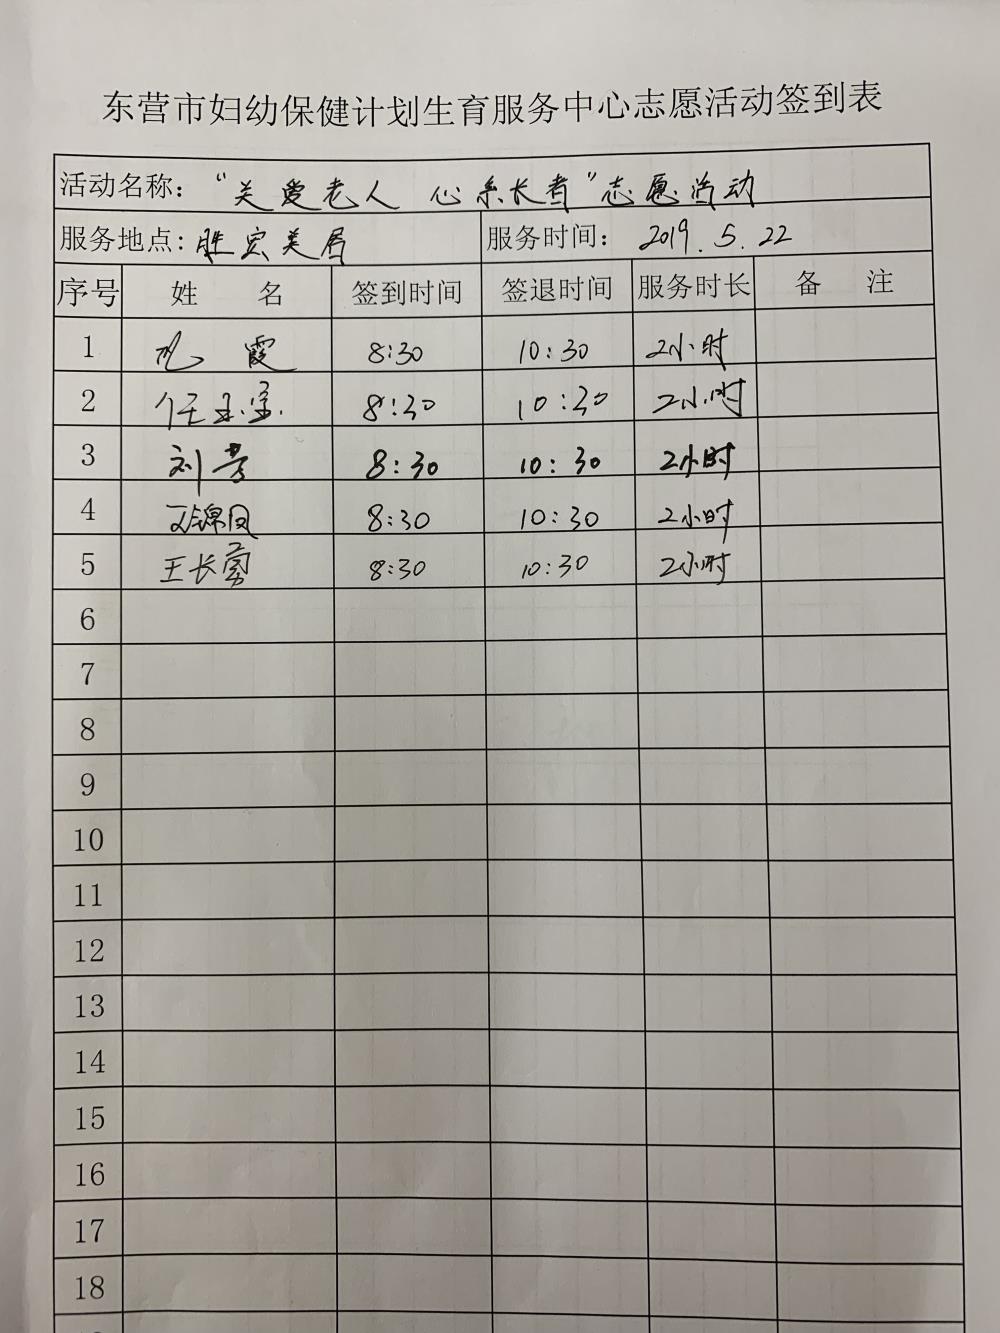 东营市妇幼保健计划生育服务中心志愿活动签到表
活动名称：“关爱老人 心系长者”志愿活动
服务地点：胜宏美居 服务时间：2019.5.22
序号 姓 名 签到时间 签退时间 服务时长 备 注
1 霞 8:30 10:30 2小时
2 任玉宝 8:30 10:30 2小时
3 刘芳 8:30 10:30 2小时
4 锦凤 8:30 10:30 2小时
5 王长 8:30 10:30 2小时
6
7
8
9
10
11
12
13
14
15
16
17
18